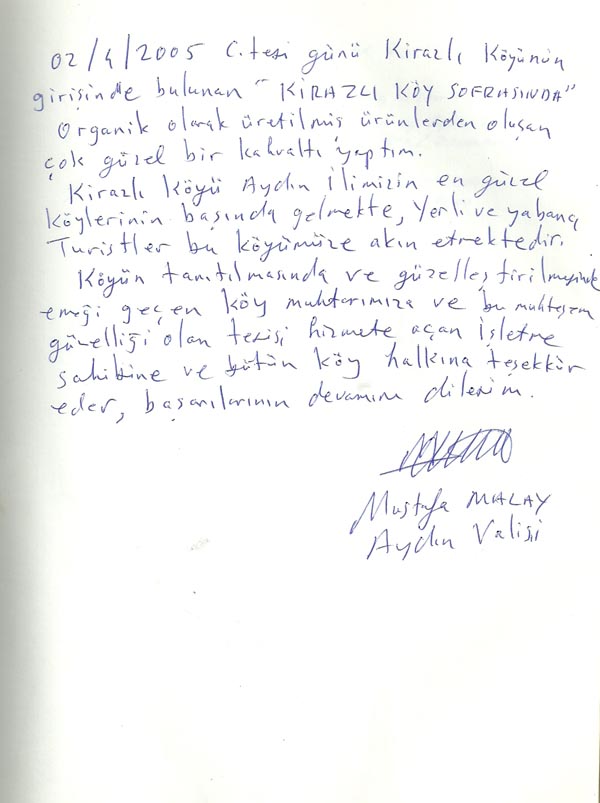 02/4/2005 C.tesi günü Kirazlı Köyünün
girişinde bulunan "KİRAZLI KÖY SOFRASINDA"
Organik olarak üretilmiş ürünlerden oluşan
çok güzel bir kahvaltı yaptım.
Kirazlı Köyü Aydın İlimizin en güzel
köylerinin başında gelmekte, Yerli ve yabancı
Turistler bu köyümüze akın etmektedir.
Köyün tanıtılmasında ve güzelleştirilmesinde
emeği geçen köy muhtarımıza ve bu muhteşem
güzelliği olan tesisi hizmete açan İşletme
sahibine ve bütün köy halkına teşekkür
eder, başarılarının devamını dilerim.
Mustafa MALAY
Aydın Valisi